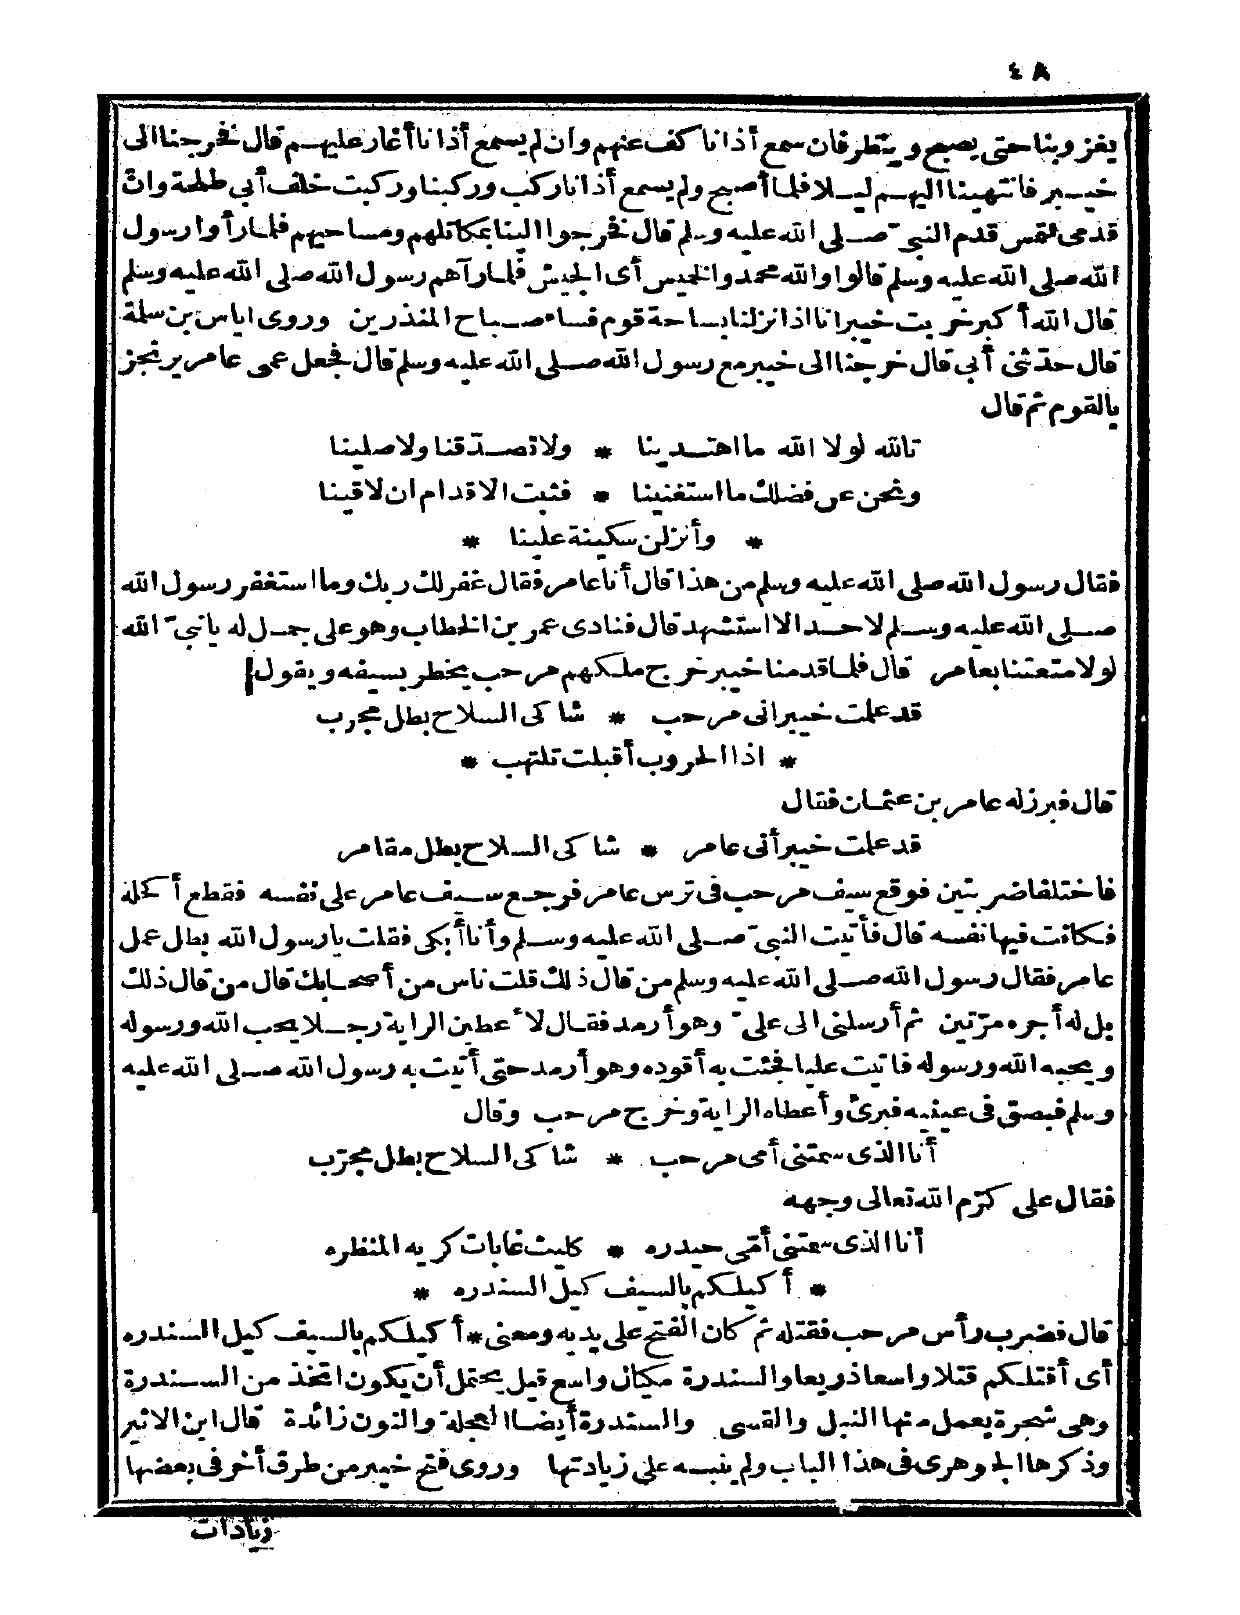 ٤٨
يغزو بنا حتى يصبح وينظر فان سمع أذانا كف عنهم وان لم يسمع أذانا أغار عليهم قال فخرجنا الى
خيبر فانتهينا اليهم ليلا فلما أصبح ولم يسمع أذانا ركب وركبنا وركبت خلف أبي طلحة وان
قدمى لتمس قدم النبيّ صلى الله عليه وسلم قال فخرجوا الينا بمكاتلهم ومساحيهم فلما رأوا رسول
الله صلى الله عليه وسلم قالوا والله محمد والخميس أى الجيش فلما رآهم رسول الله صلى الله عليه وسلم
قال الله أكبر خربت خيبر انا اذا نزلنا بساحة قوم فساء صباح المنذرين وروى اياس بن سلمة
قال حدّثنى أبي قال خرجنا الى خيبر مع رسول الله صلى الله عليه وسلم قال فجعل عمى عامر يرتجز
بالقوم ثم قال
تالله لولا الله ما اهتدينا * ولا تصدّقنا ولا صلينا
ونحن عن فضلك ما استغنينا * فثبت الاقدام ان لاقينا
* وأنزلن سكينة علينا *
فقال رسول الله صلى الله عليه وسلم من هذا قال أنا عامر فقال غفر لك ربك وما استغفر رسول الله
صلى الله عليه وسلم لاحد الا استشهد قال فنادى عمر بن الخطاب وهو على جمل له يا نبيّ الله
لولا متعتنا بعامر قال فلما قدمنا خيبر خرج ملكهم مرحب يخطر بسيفه ويقول
قد علمت خيبر انى مرحب * شاكى السلاح بطل مجرب
* اذا الحروب أقبلت تلتهب *
قال فبرز له عامر بن عثمان فقال
قد علمت خيبر أنى عامر * شاكى السلاح بطل مقامر
فاختلفا ضربتين فوقع سيف مرحب فى ترس عامر فرجع سيف عامر على نفسه فقطع أكحله
فكانت فيها نفسه قال فأتيت النبيّ صلى الله عليه وسلم وأنا أبكى فقلت يا رسول الله بطل عمل
عامر فقال رسول الله صلى الله عليه وسلم من قال ذلك قلت ناس من أصحابك قال من قال ذلك
بل له أجره مرّتين ثم أرسلنى الى علىّ وهو أرمد فقال لاعطين الراية رجلا يحب الله ورسوله
ويحبه الله ورسوله فاتيت عليا فجئت به أقوده وهو أرمد حتى أتيت به رسول الله صلى الله عليه
وسلم فبصق فى عينيه فبرئ وأعطاه الراية وخرج مرحب وقال
أنا الذى سمتنى أمى مرحب * شاكى السلاح بطل مجرّب
فقال على كرّم الله تعالى وجهه
أنا الذى سمتنى أمّى حيدره * كليث غابات كريه المنظره
* أكيلكم بالسيف كيل السندره *
قال فضرب رأس مرحب فقتله ثم كان الفتح على يديه ومعنى * أكيلكم بالسيف كيل السندره
أى أقتلكم قتلا واسعا ذريعا والسندرة مكيال واسع قيل يحتمل أن يكون اتخذ من السندرة
وهى شجرة يعمل منها النبل والقسى والسندرة أيضا العجلة والنون زائدة قال ابن الاثير
وذكرها الجوهرى فى هذا الباب ولم ينبه على زيادتها وروى فتح خيبر من طرق أخر فى بعضها
زيادات